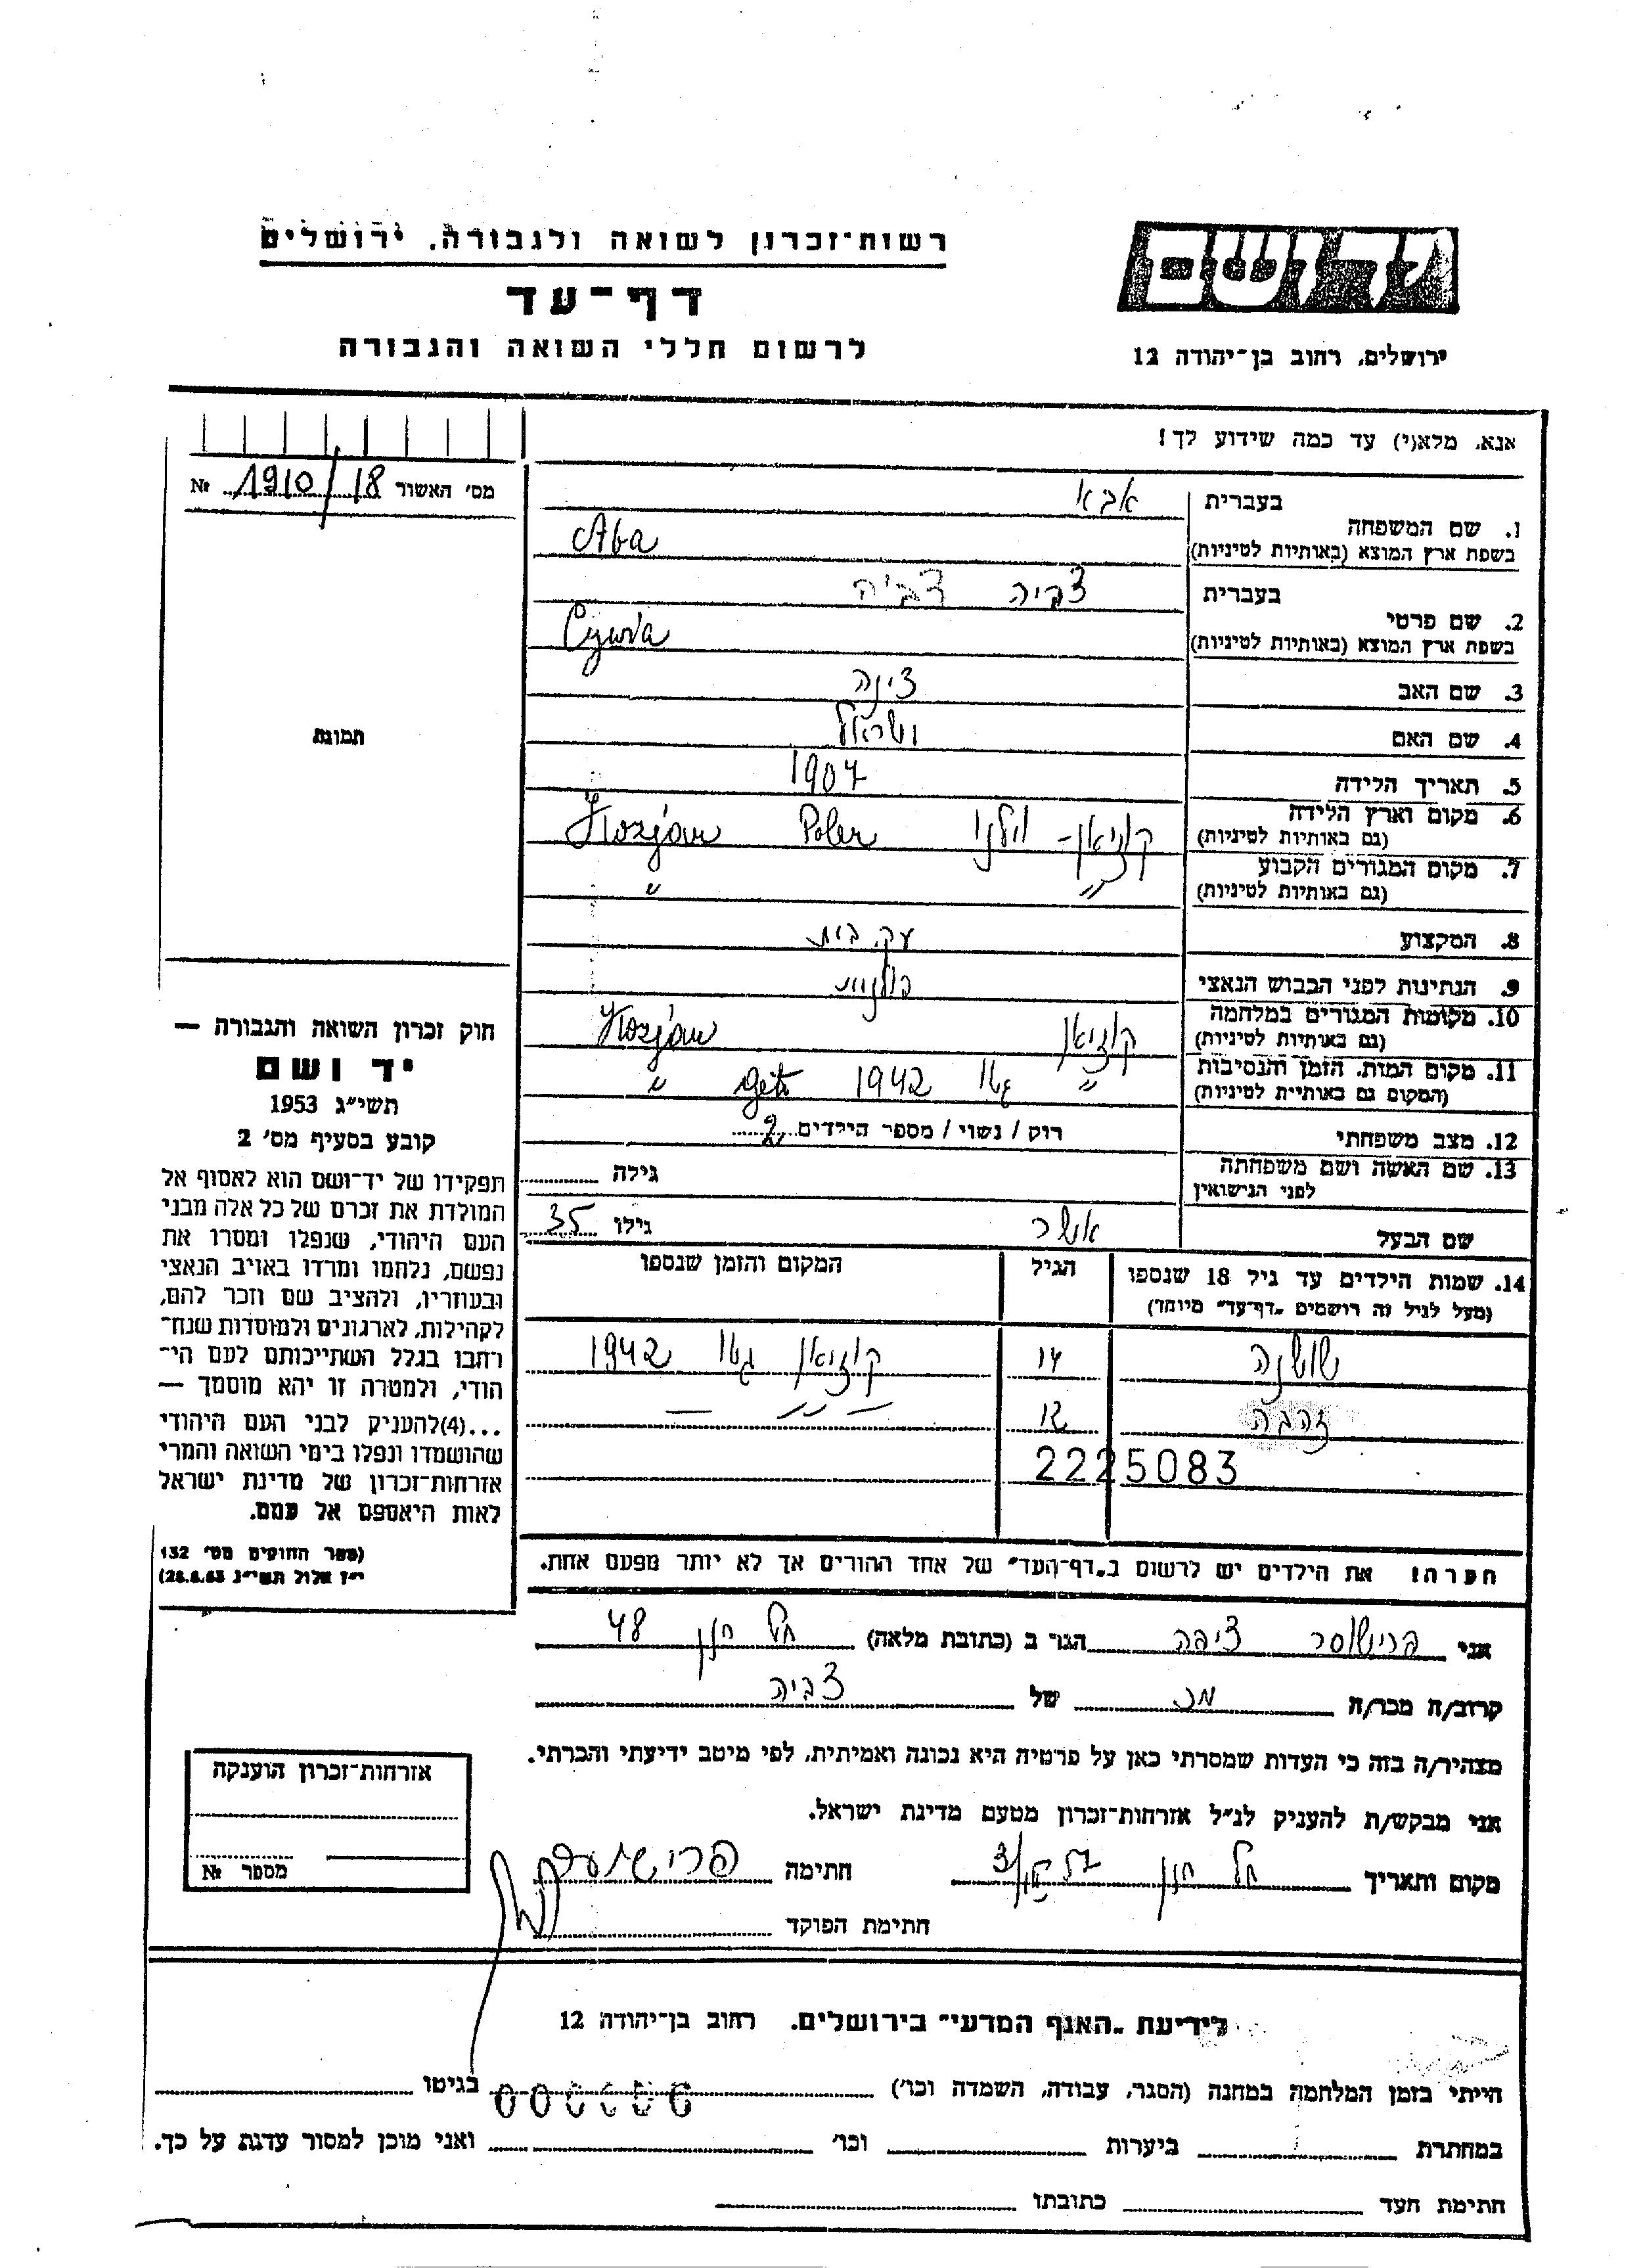 רשות־זכרון לשואה ולגבורה. ירושלים
דף־עד
לרשום חללי השואה והגבורה
יד ושם
ירושלים, רחוב בן־יהודה 12
אנא, מלא(י) עד כמה שידוע לך!
מס׳ האשור 1910/18 №
בעברית אבא
1. שם המשפחה
בשפת ארץ המוצא (באותיות לטיניות) Aba
בעברית צביה צביה
2. שם פרטי
בשפת ארץ המוצא (באותיות לטיניות) Cywia
3. שם האב
4. שם האם
5. תאריך הלידה 1907
6. מקום וארץ הלידה
(גם באותיות לטיניות) קוזיאן - וילנו Polen Kozjan
7. מקום המגורים הקבוע
(גם באותיות לטיניות) " "
8. המקצוע עק. בית
9. הנתינות לפני הכבוש הנאצי פולנית
10. מקומות המגורים במלחמה
(גם באותיות לטיניות) קוזיאן Kozjan
11. מקום המות, הזמן והנסיבות
(המקום גם באותיות לטיניות) " גטו 1942 geto "
12. מצב משפחתי רוק / נשוי / מספר הילדים 2
13. שם האשה ושם משפחתה
לפני הנישואין גילה
שם הבעל אשר גילו 35
14. שמות הילדים עד גיל 18 שנספו
(מעל לגיל זה רושמים „דף־עד״ מיוחד) הגיל המקום והזמן שנספו
שושנה 14 קוזיאן גטו 1942
זהבה 12 — " —
2225083
הערה! את הילדים יש לרשום ב„דף־העד״ של אחד ההורים אך לא יותר מפעם אחת.
תמונה
חוק זכרון השואה והגבורה —
יד ושם
תשי״ג 1953
קובע בסעיף מס׳ 2
תפקידו של יד־ושם הוא לאסוף אל
המולדת את זכרם של כל אלה מבני
העם היהודי, שנפלו ומסרו את
נפשם, נלחמו ומרדו באויב הנאצי
ובעוזריו, ולהציב שם וזכר להם,
לקהילות, לארגונים ולמוסדות שנח־
רבו בגלל השתייכותם לעם הי־
הודי, ולמטרה זו יהא מוסמך —
...(4)להעניק לבני העם היהודי
שהושמדו ונפלו בימי השואה והמרי
אזרחות־זכרון של מדינת ישראל
לאות היאספם אל עמם.
(ספר החוקים מס׳ 132
י״ז אלול תשי״ג 28.8.53)
אני ציפה הגר ב (כתובת מלאה) תל חנן 48
קרוב/ה מכר/ה מכ של צביה
מצהיר/ה בזה כי העדות שמסרתי כאן על פרטיה היא נכונה ואמיתית, לפי מיטב ידיעתי והכרתי.
אני מבקש/ת להעניק לנ״ל אזרחות־זכרון מטעם מדינת ישראל.
מקום ותאריך תל חנן חתימה
חתימת הפוקד
אזרחות־זכרון הוענקה
מספר №
לידיעת „האגף המדעי״ בירושלים. רחוב בן־יהודה 12
הייתי בזמן המלחמה במחנה (הסגר, עבודה, השמדה וכו׳) בגיטו
במחתרת ביערות וכו׳ ואני מוכן למסור עדות על כך.
חתימת העד כתובתו